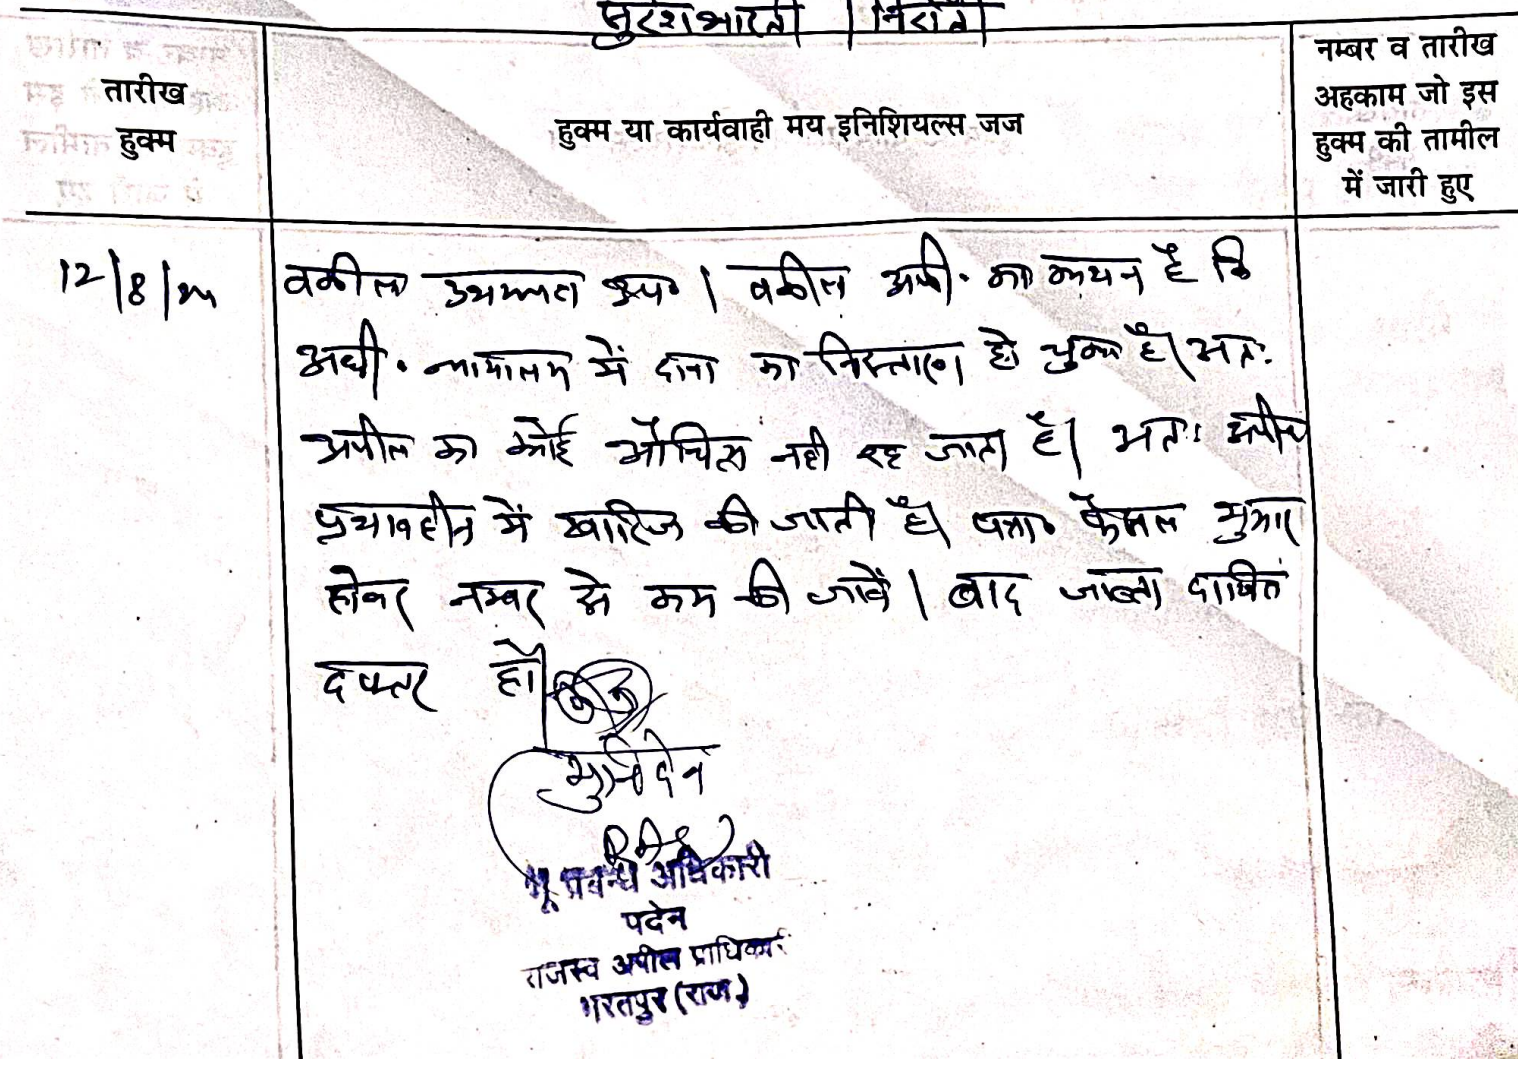 सुरेशभारती
तारीख
हुक्म
हुक्म या कार्यवाही मय इनिशियल्स जज
नम्बर व तारीख
अहकाम जो इस
हुक्म की तामील
में जारी हुए
12/8/
वकील उभयपक्ष उप० । वकील अपी. का कथन है कि
अधी. न्यायालय में दावा का निस्तारण हो चुका है। अतः
अपील का कोई औचित्य नही रह जाता है। अतः अपील
प्रभावहीन में खारिज की जाती है। पत्रा० फैसल शुमार
होकर नम्बर से कम की जावें । बाद जाब्ता दाखिल
दफ्तर हो।
भू प्रबन्ध अधिकारी
पदेन
राजस्व अपील प्राधिकारी
भरतपुर (राज.)